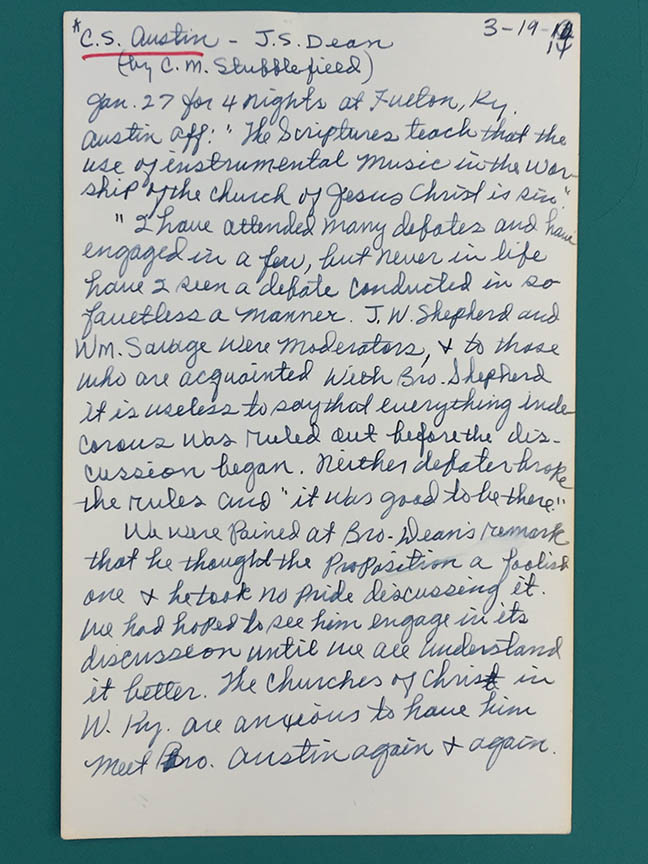 * C.S. Austin - J.S. Dean 3-19-14
(by C.M. Stubblefield) 14
Jan. 27 for 4 nights at Fulton, Ky.
Austin aff: "The Scriptures teach that the
use of instrumental music in the wor-
ship of the church of Jesus Christ is sin."
"I have attended many debates and have
engaged in a few, but never in life
have I seen a debate conducted in so
faultless a manner. J.W. Shepherd and
Wm. Savage were moderators, & to those
who are acquainted with Bro. Shepherd
it is useless to say that everything inde
corous was ruled out before the dis-
cussion began. Neither debater broke
the rules and "it was good to be there."
We were pained at Bro. Dean's remark
that he thought the proposition a foolish
one & he took no pride discussing it.
We had hoped to see him engage in its
discussion until we all understand
it better. The churches of Christ in
W. Ky. are anxious to have him
meet Bro. Austin again & again.